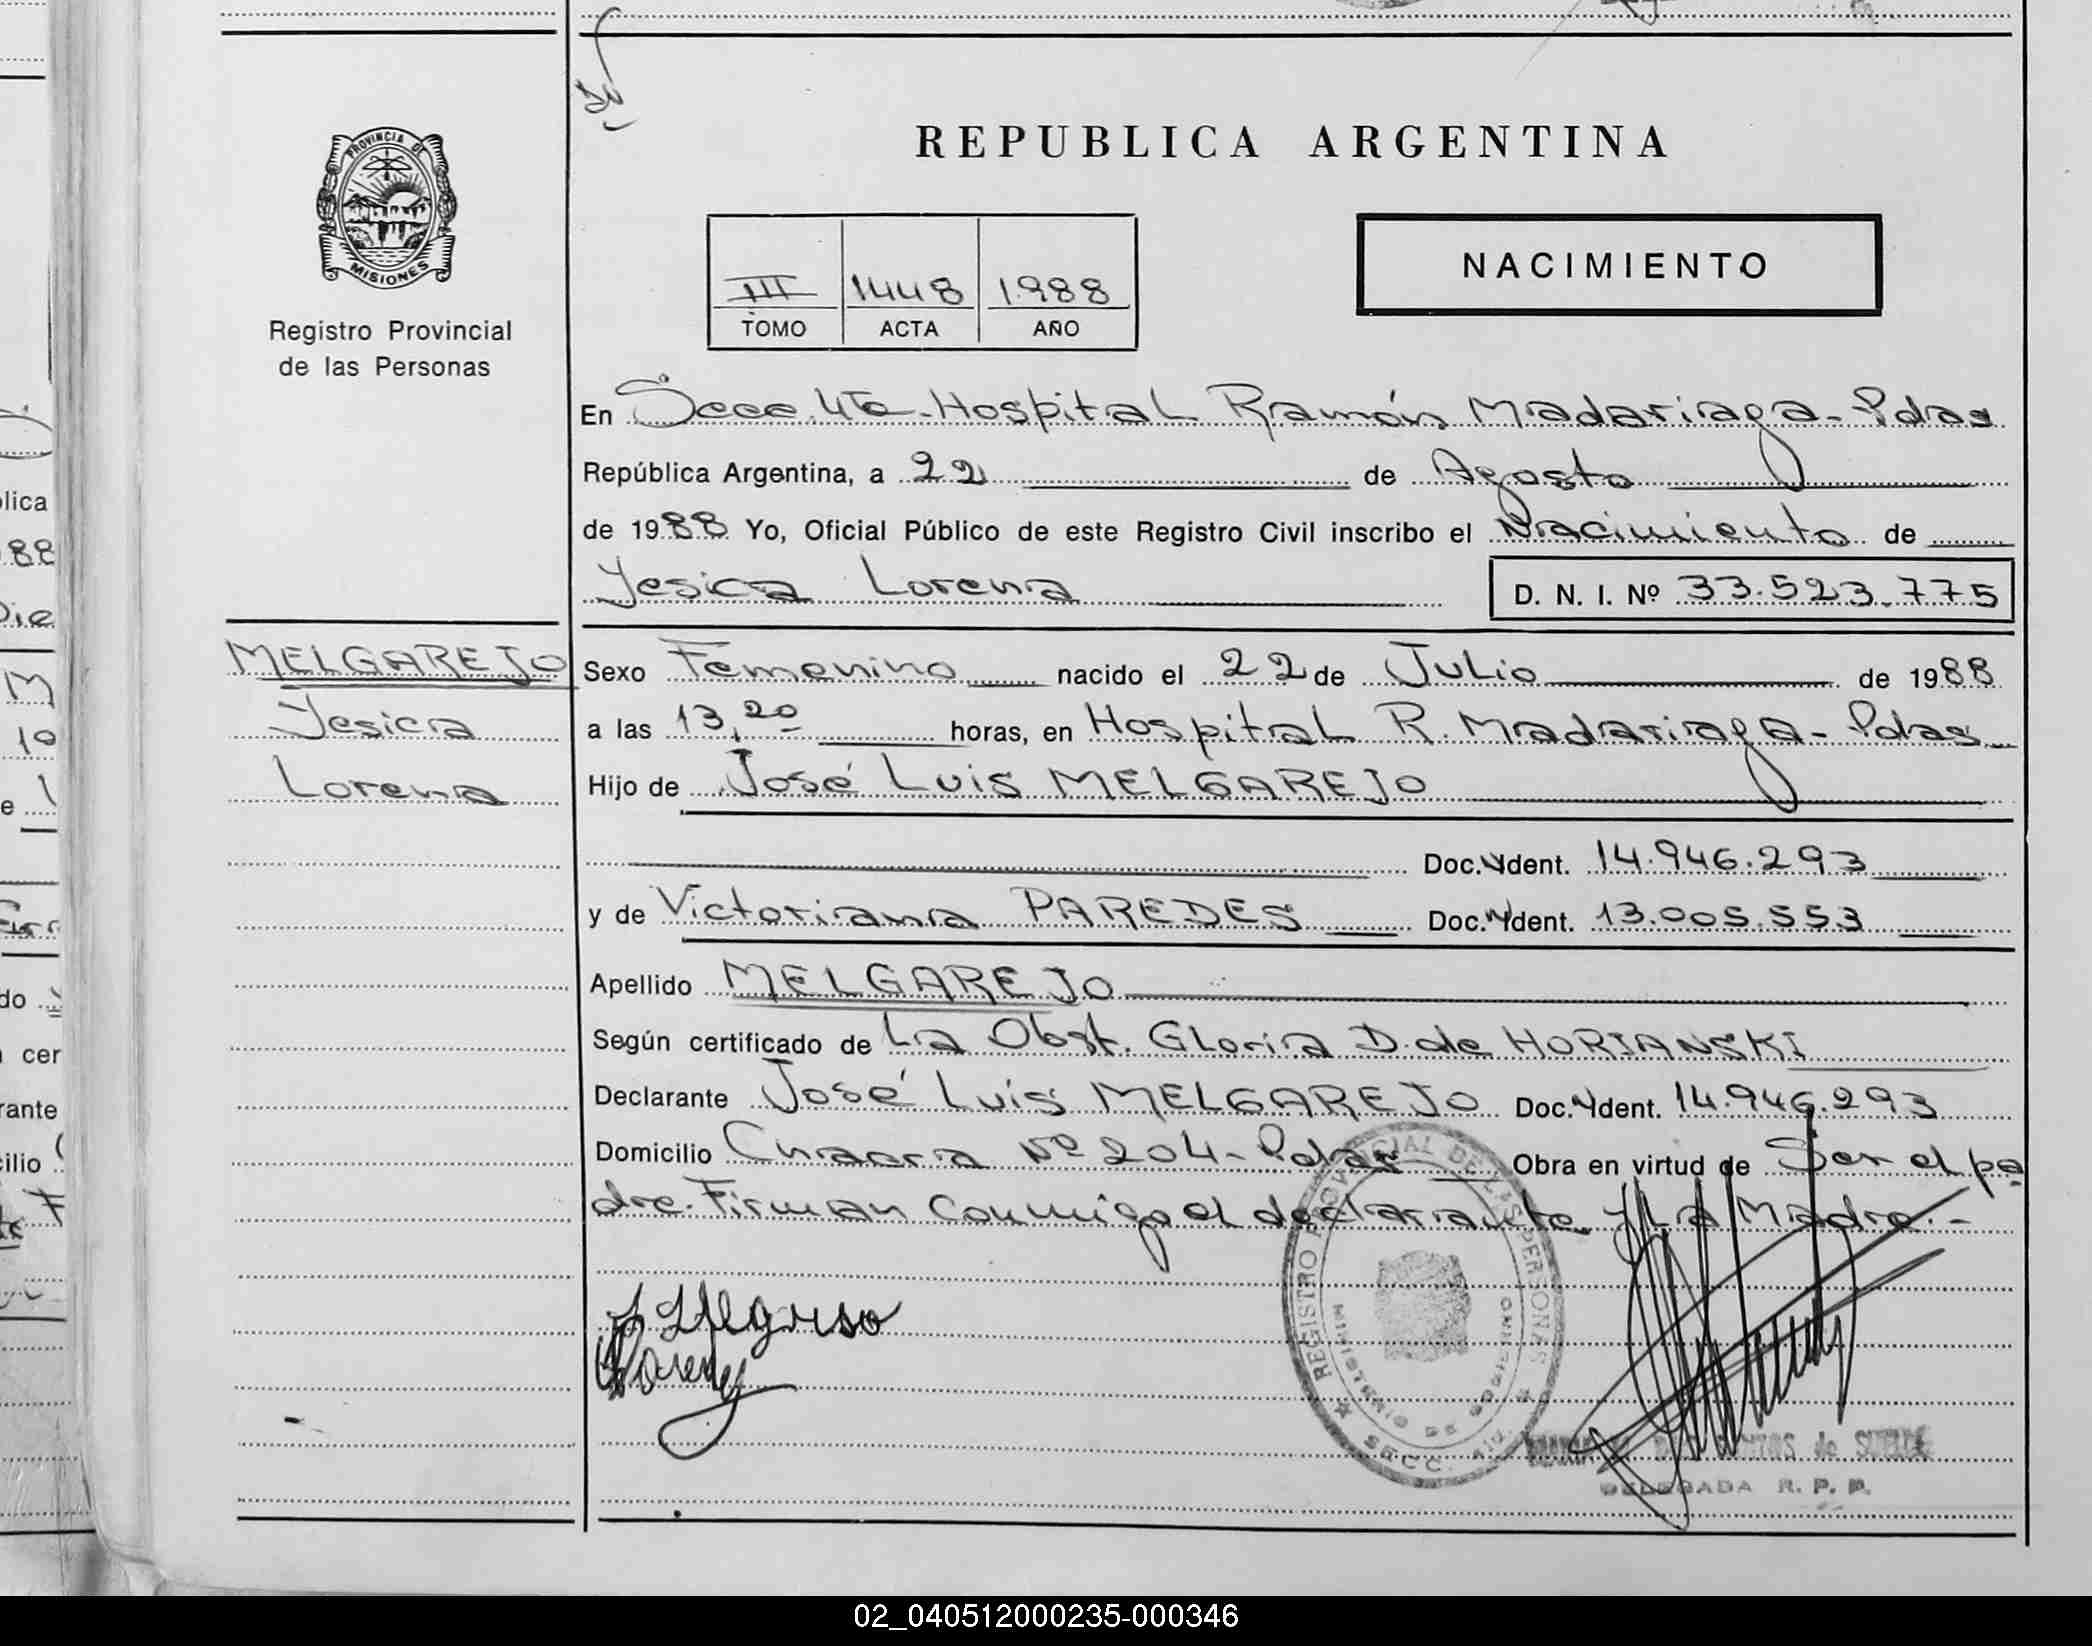 REPUBLICA ARGENTINA
PROVINCIA DE
MISIONES
Registro Provincial
de las Personas
NACIMIENTO
III 1448 1988
TOMO ACTA AÑO
En Secc. 4ta. Hospital Ramón Madariaga - Pdas
República Argentina, a 22 de Agosto
de 1988 Yo, Oficial Público de este Registro Civil inscribo el Nacimiento de
Yesica Lorena D. N. I. Nº 33.523.775
MELGAREJO
Yesica
Lorena
Sexo Femenino nacido el 22 de Julio de 1988
a las 13,20 horas, en Hospital R. Madariaga - Pdas
Hijo de José Luis MELGAREJO
Doc. Ident. 14.946.293
y de Victoriana PAREDES Doc. Ident. 13.005.553
Apellido MELGAREJO
Según certificado de La Obst. Gloria D. de HORIANSKI
Declarante José Luis MELGAREJO Doc. Ident. 14.946.293
Domicilio Chacra Nº 204 - Pdas Obra en virtud de Ser el pa
dre. Firman conmigo el declarante y La Madre.-
REGISTRO PROVINCIAL DE LAS PERSONAS
DE GOBIERNO
SECC.
DELEGADA R. P. P.
02_040512000235-000346